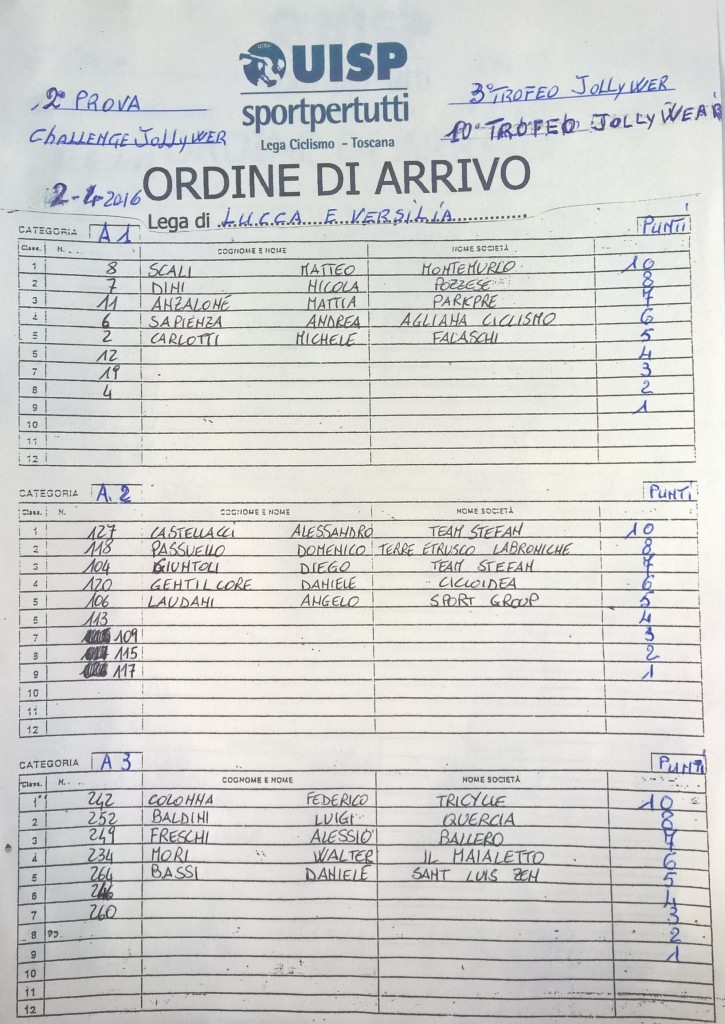 UISP
sportpertutti
Lega Ciclismo - Toscana
2ª PROVA
CHALLENGE JOLLYWER
3° TROFEO JOLLYWER
10° TROFEO JOLLYWEAR
2-4-2016 ORDINE DI ARRIVO
Lega di LUCCA E VERSILIA
CATEGORIA A1 PUNTI
Class. N. COGNOME E NOME NOME SOCIETÀ
1 8 SCALI MATTEO MONTEMURLO 10
2 7 DINI NICOLA POZZESE 8
3 11 ANZALONE MATTIA PARKPRE 7
4 6 SAPIENZA ANDREA AGLIANA CICLISMO 6
5 2 CARLOTTI MICHELE FALASCHI 5
6 12 4
7 19 3
8 4 2
9 1
10
11
12
CATEGORIA A.2 PUNTI
Class. N. COGNOME E NOME NOME SOCIETÀ
1 127 CASTELLACCI ALESSANDRO TEAM STEFAN 10
2 118 PASSUELLO DOMENICO TERRE ETRUSCO LABRONICHE 8
3 104 GIUNTOLI DIEGO TEAM STEFAN 7
4 120 GENTILCORE DANIELE CICLOIDEA 6
5 106 LAUDANI ANGELO SPORT GROUP 5
6 113 4
7 109 3
8 115 2
9 117 1
10
11
12
CATEGORIA A3 PUNTI
Class. N. COGNOME E NOME NOME SOCIETÀ
1 242 COLONNA FEDERICO TRICYLLE 10
2 252 BALDINI LUIGI QUERCIA 8
3 249 FRESCHI ALESSIO BALLERO 7
4 234 MORI WALTER IL MAIALETTO 6
5 264 BASSI DANIELE SANT LUIS ZEN 5
6 4
7 260 3
8 2
9 1
10
11
12